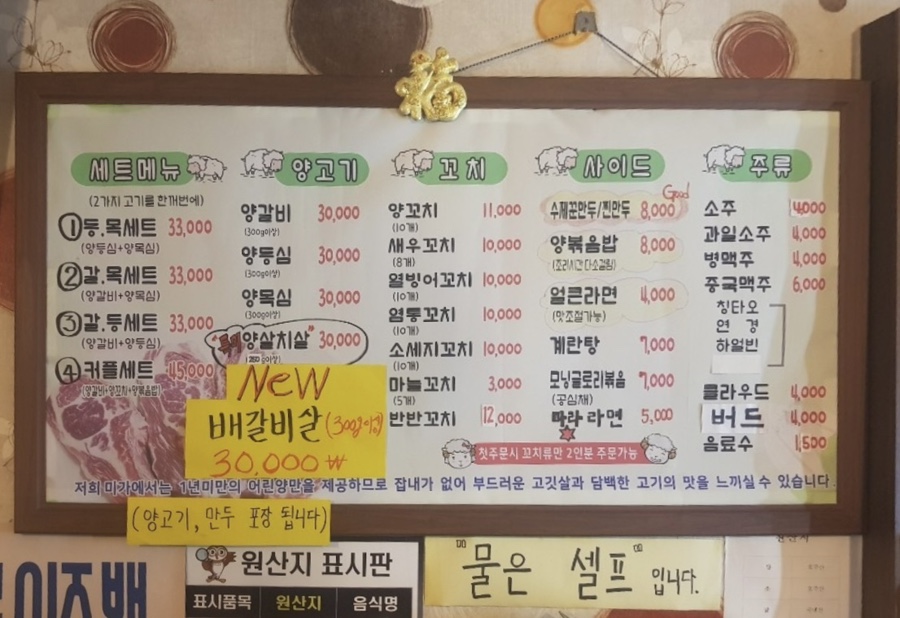 福
세트메뉴
(2가지 고기를 한꺼번에)
① 등.목세트 33,000
(양등심+양목심)
② 갈.목세트 33,000
(양갈비+양목심)
③ 갈.등세트 33,000
(양갈비+양등심)
④ 커플세트 45,000
(양갈비+양꼬치+양볶음밥)
양고기
양갈비 30,000
(300g이상)
양등심 30,000
(300g이상)
양목심 30,000
(300g이상)
양살치살" 30,000
NEW
배갈비살 (300g이상)
30,000 ₩
꼬치
양꼬치 11,000
(10개)
새우꼬치 10,000
(8개)
열빙어꼬치 10,000
(10개)
염통꼬치 10,000
(10개)
소세지꼬치 10,000
(10개)
마늘꼬치 3,000
(5개)
반반꼬치 12,000
첫주문시 꼬치류만 2인분 주문가능
사이드
Good
수제군만두/찐만두 8,000
양볶음밥 8,000
(조리시간 다소걸림)
얼큰라면 4,000
(맛조절가능)
계란탕 7,000
모닝글로리볶음 7,000
(공심채)
마라 라면 5,000
주류
소주 4,000
과일소주 4,000
병맥주 4,000
중국맥주 6,000
칭타오
연경
하얼빈
클라우드 4,000
버드 4,000
음료수 1,500
저희 미가에서는 1년미만의 어린양만을 제공하므로 잡내가 없어 부드러운 고깃살과 담백한 고기의 맛을 느끼실 수 있습니다.
(양고기, 만두 포장 됩니다)
원산지 표시판
표시품목 원산지 음식명
"물은 셀프" 입니다.